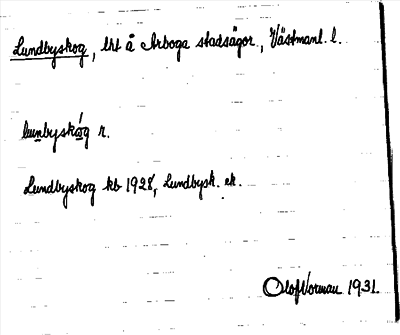 Lundbyskog, lht å Arboga stadsägor., Västmanl. l.
lunbyskóg n.
Lundbyskog kb 1928, Lundbysk. ek.
Olof Norman 1931